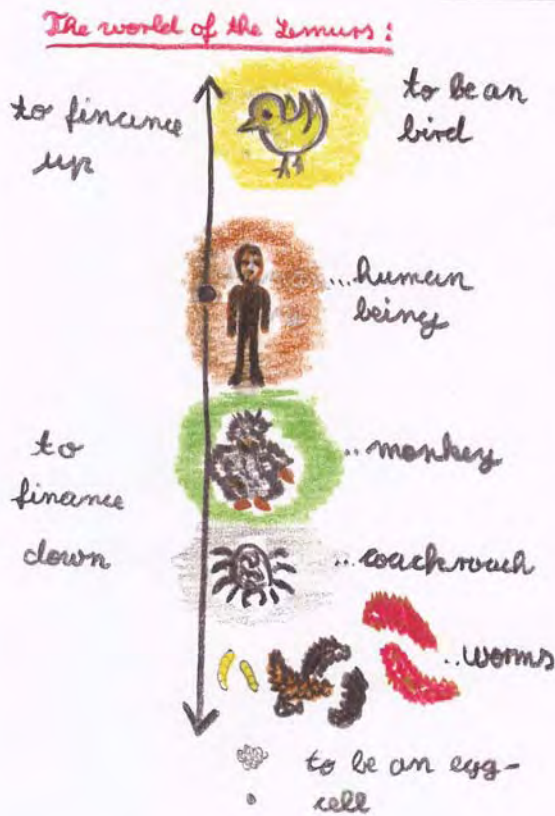 The world of the Lemurs:
to finance
up
to be an
bird
...human
being
to
finance
down
..monkey
...coackroach
..worms
to be an egg-
cell